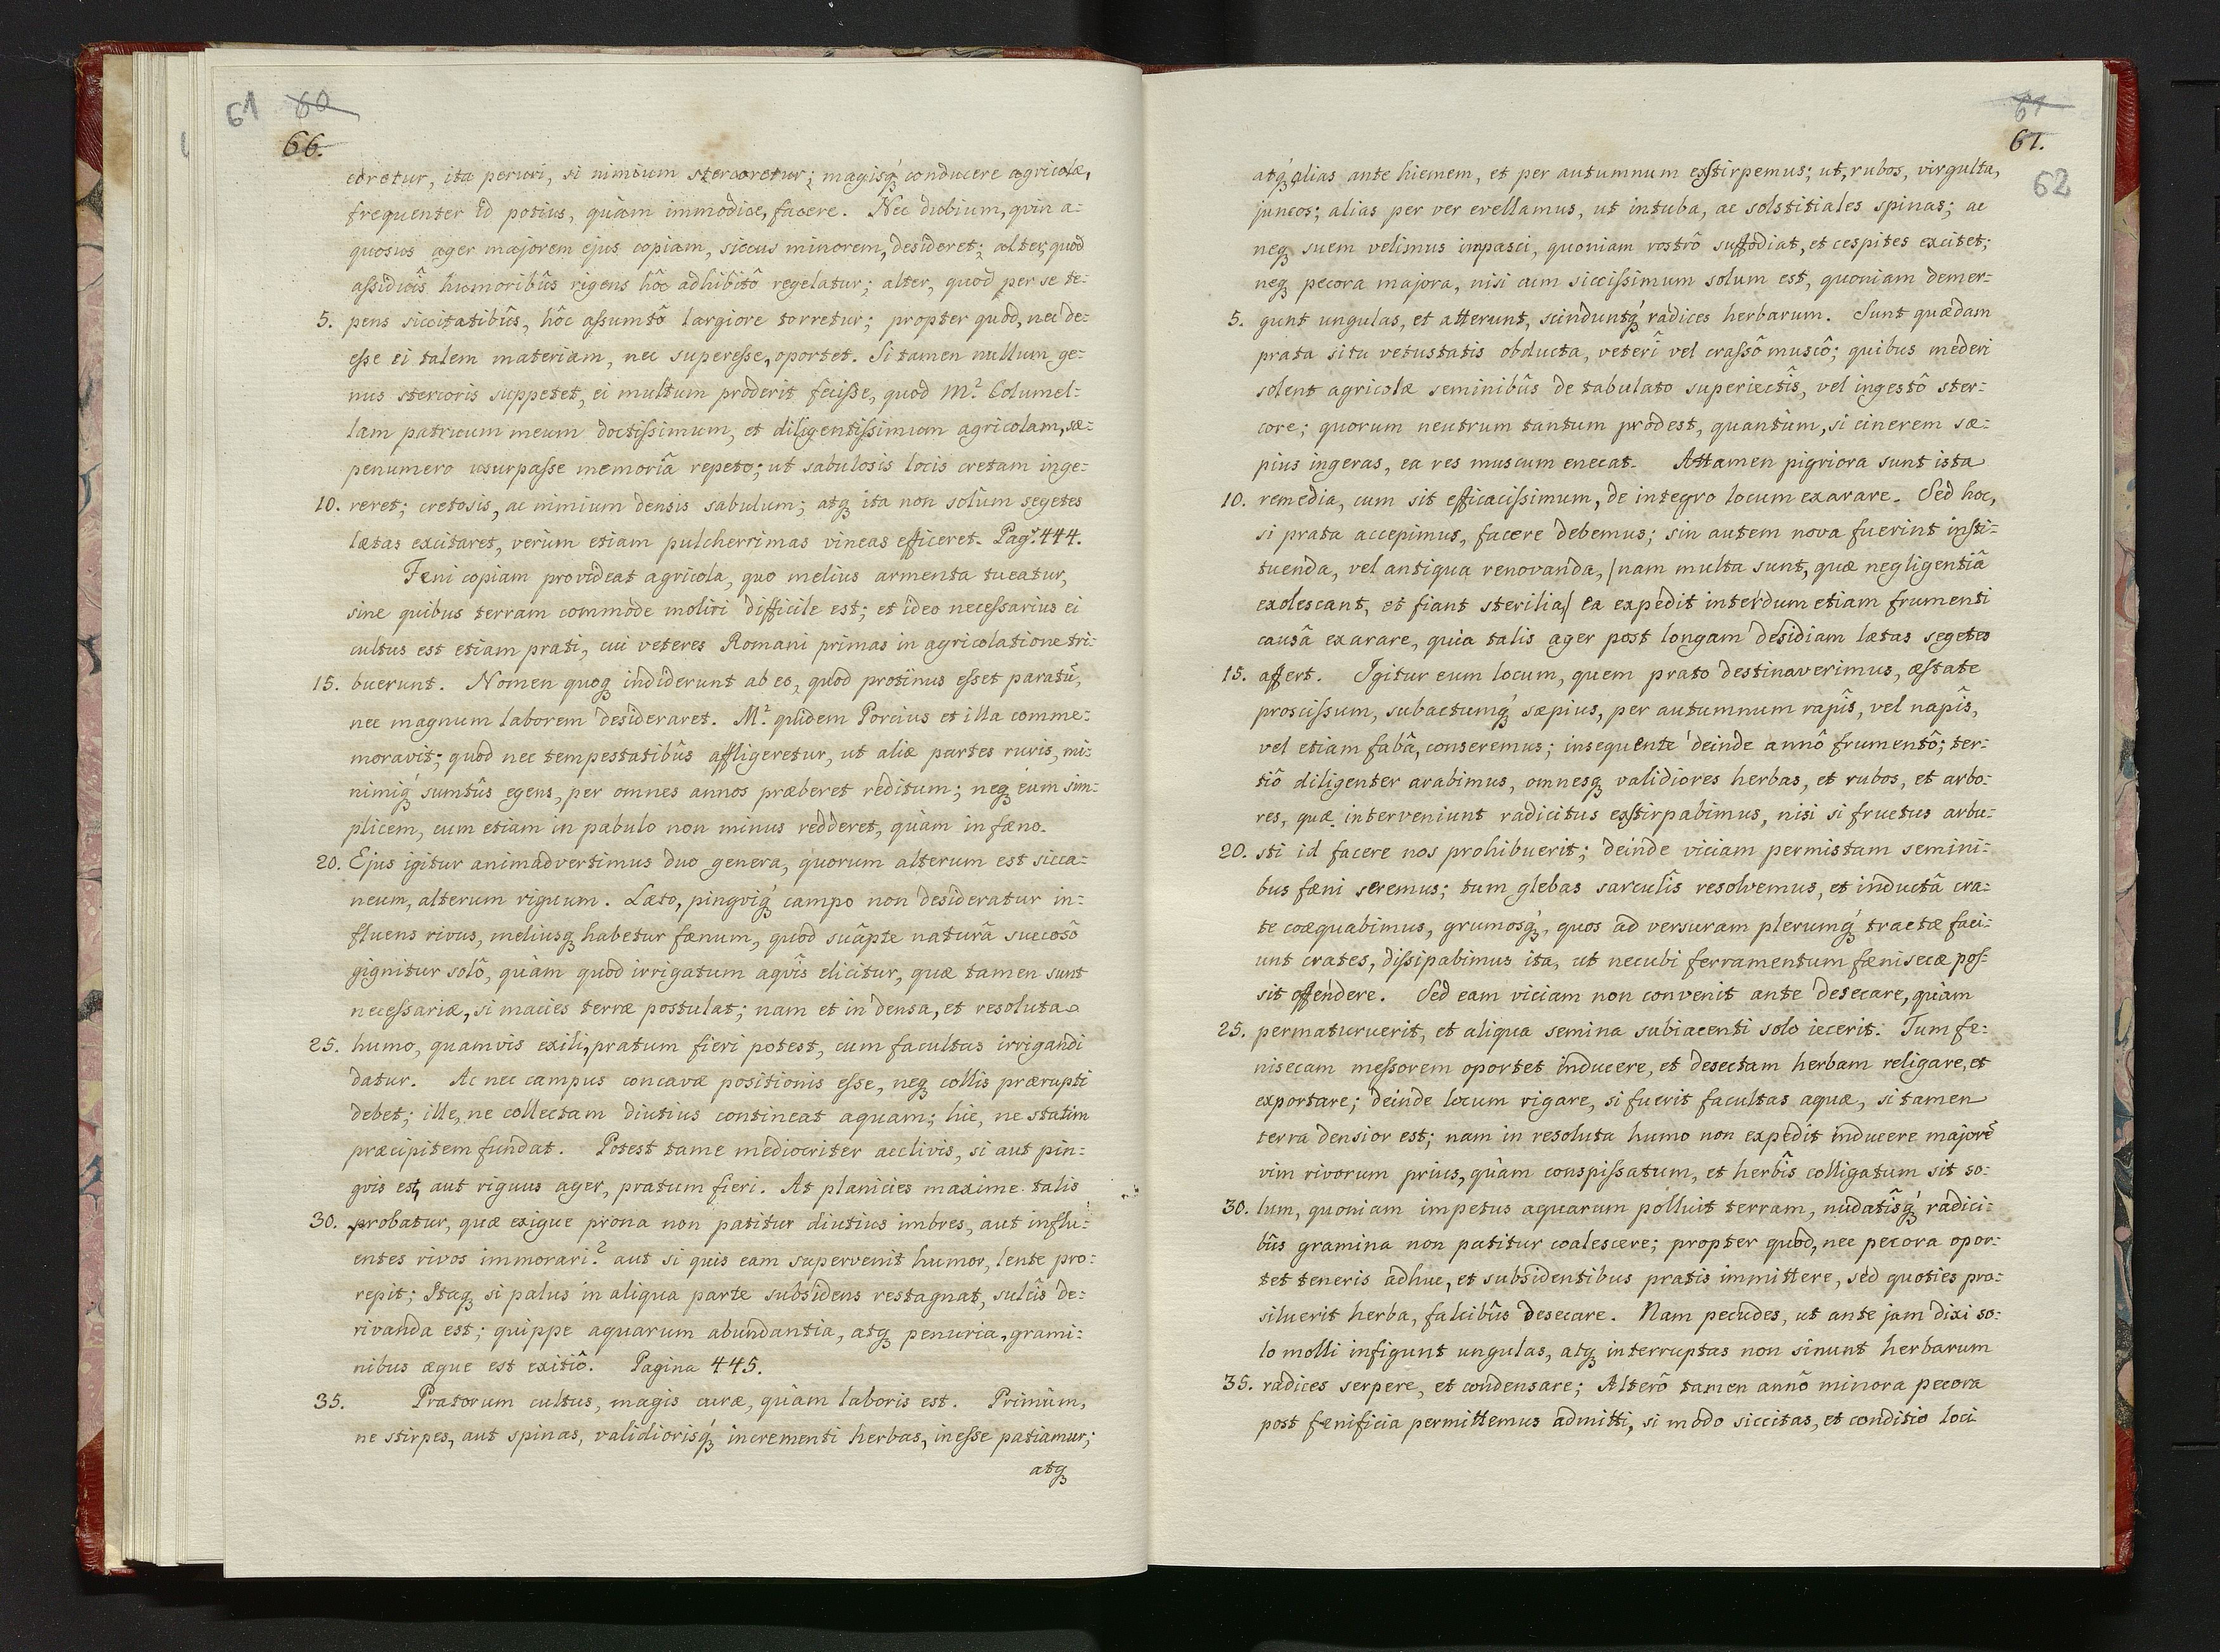 61 60
66.
coretur, ita peruri, si nimium stercoretur; magisq́ʒ conducere agricolæ,
frequenter id potius, quàm immodice, facere. Nec dubium, qvin a:
quosus ager majorem ejus copiam, siccus minorem, desideret; alter, quod
aſsiduîs humoribûs rigens hôc adhibitô regelatur; alter, quod per se te:
5. pens siccitatibûs, hôc aſsumtô largiore torretur; propter quòd, nec de:
eſse ei talem materiam, nec supereſse, oportet. Si tamen nullum ge:
nus stercoris suppetet, ei multum proderit feciſse, quod M.² Columel:
lam patruum meum doctiſsimum, et diligentiſsimum agricolam, sæ:
penumero usurpaſse memoriâ repeto; ut sabulosis locis cretam inge:
10. reret; cretosis, ac nimium densis sabulum; atqʒ ita non solùm segetes
lætas excitaret, verùm etiam pulcherrimas vineas efficeret. Pag. 444.
Feni copiam provideat agricola, quo melius armenta tueatur,
sine quibus terram commode moliri difficile est; et ideo neceſsarius ei
cultus est etiam prati, cui veteres Romani primas in agricolatione tri:
15. buerunt. Nomen quoqʒ indiderunt ab eo, quòd protinus eſset paratũ,
nec magnum laborem desideraret. M.² quidem Porcius et illa comme:
moravit; quòd nec tempestatibûs affligeretur, ut aliæ partes ruris, mi:
nimiq́ʒ sumtûs egens, per omnes annos præberet reditum; neqʒ eum sim:
plicem, cum etiam in pabulo non minus redderet, quàm in fæno.
20. Ejus igitur animadvertimus duo genera, quorum alterum est sicca:
neum, alterum riguum. Læto, pingviq́ʒ campo non desideratur in:
fluens rivus, meliusqʒ habetur fænum, quod suâpte naturâ succosô
gignitur solô, quàm quod irrigatum aqvîs elicitur, quæ tamen sunt
neceſsariæ, si macies terræ postulat; nam et in densa, et resoluta
25. humo, quamvis exili, pratum fieri potest, cum facultas irrigandi
datur. Ac nec campus concavæ positionis eſse, neqʒ collis prærupti
debet; ille, ne collectam diutius contineat aquam; hic, ne statim
præcipitem fundat. Potest tame mediocriter acclivis, si aut pin:
gvis est, aut riguus ager, pratum fieri. At planicies maxime talis
30. probatur, quæ exigue prona non patitur diutius imbres, aut influ:
entes rivos immorari? aut si quis eam supervenit humor, lente pro:
repit; Itaqʒ si palus in aliqua parte subsidens restagnat, sulcîs de:
rivanda est; quippe aquarum abundantia, atqʒ penuria, grami:
nibus æque est exitiô. Pagina 445.
35. Pratorum cultus, magis curæ, quàm laboris est. Primùm,
ne stirpes, aut spinas, validiorisq́ʒ incrementi herbas, ineſse patiamur;
atqʒ
61
67.
62
atqʒ alias ante hiemem, et per autumnum exſtirpemus; ut, rubos, virgulta,
juncos; alias per ver evellamus, ut intuba, ac solstitiales spinas; ac
neqʒ suem velimus impasci, quoniam rostrô suffodiat, et cespites excitet;
neqʒ pecora majora, nisi cùm sicciſsimum solum est, quoniam demer:
5. gunt ungulas, et atterunt, scinduntq́ʒ radices herbarum. Sunt quædam
prata situ vetustatis obducta, veterî vel craſsô muscô; quibus mederi
solent agricolæ seminibûs de tabulato superiectîs, vel ingestô ster:
core; quorum neutrum tantum prodest, quantùm, si cinerem sæ:
pius ingeras, ea res muscum enecat. Attamen pigriora sunt ista
10. remedia, cum sit efficaciſsimum, de integro locum exarare. Sed hoc,
si prata accepimus, facere debemus; sin autem nova fuerint inſti:
tuenda, vel antiqua renovanda, /nam multa sunt, quæ negligentiâ
exolescant, et fiant sterilia/ ea expedit interdum etiam frumenti
causâ exarare, quia talis ager post longam desidiam lætas segetes
15. affert. Igitur eum locum, quem prato destinaverimus, æſtate
prosciſsum, subactumq́ʒ sæpius, per autumnum rapîs, vel napîs,
vel etiam fabâ, conseremus; insequente deinde annô frumentô; ter:
tiô diligenter arabimus, omnesqʒ validiores herbas, et rubos, et arbo:
res, quæ interveniunt radicitus exſtirpabimus, nisi si fructus arbu:
20. sti id facere nos prohibuerit; deinde viciam permistam semini:
bus fæni seremus; tum glebas sarculîs resolvemus, et inductâ cra:
te coæquabimus, grumosq́ʒ, quos ad versuram plerumq́ʒ tractæ faci:
unt crates, diſsipabimus ita, ut necubi ferramentum fænisecæ poſ:
sit offendere. Sed eam viciam non convenit ante desecare, quàm
25. permaturuerit, et aliqua semina subiacenti solo iecerit. Tum fe:
nisecam meſsorem oportet inducere, et desectam herbam religare, et
exportare; deinde locum rigare, si fuerit facultas aquæ, si tamen
terra densior est; nam in resoluta humo non expedit inducere majorẽ
vim rivorum prius, quàm conspiſsatum, et herbîs colligatum sit so:
30. lum, quoniam impetus aquarum polluit terram, nudatîsq́ʒ radici:
bûs gramina non patitur coalescere; propter quòd, nec pecora opor:
tet teneris adhuc, et subsidentibus pratis immittere, sed quoties pro:
siluerit herba, falcibûs desecare. Nam pecudes, ut ante jam dixi so:
lo molli infigunt ungulas, atqʒ interruptas non sinunt herbarum
35. radices serpere, et condensare; Alterô tamen annô minora pecora
post fenificia permittemus admitti, si modo siccitas, et conditio loci